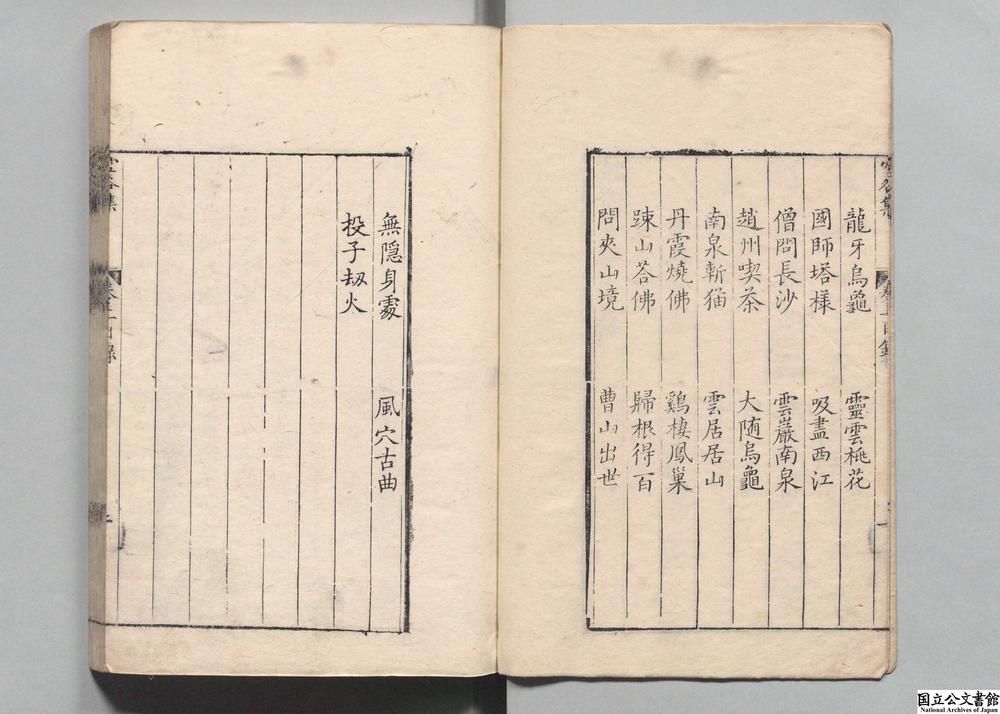 龍牙烏龜 靈雲桃花
國師塔樣 吸盡西江
僧問長沙 雲巖南泉
趙州喫茶 大随烏龜
南泉斬猫 雲居居山
丹霞燒佛 鷄棲鳳巢
踈山荅佛 歸根得百
問夾山境 曹山出世
無隠身處 風穴古曲
投子劫火
国立公文書館
National Archives of Japan